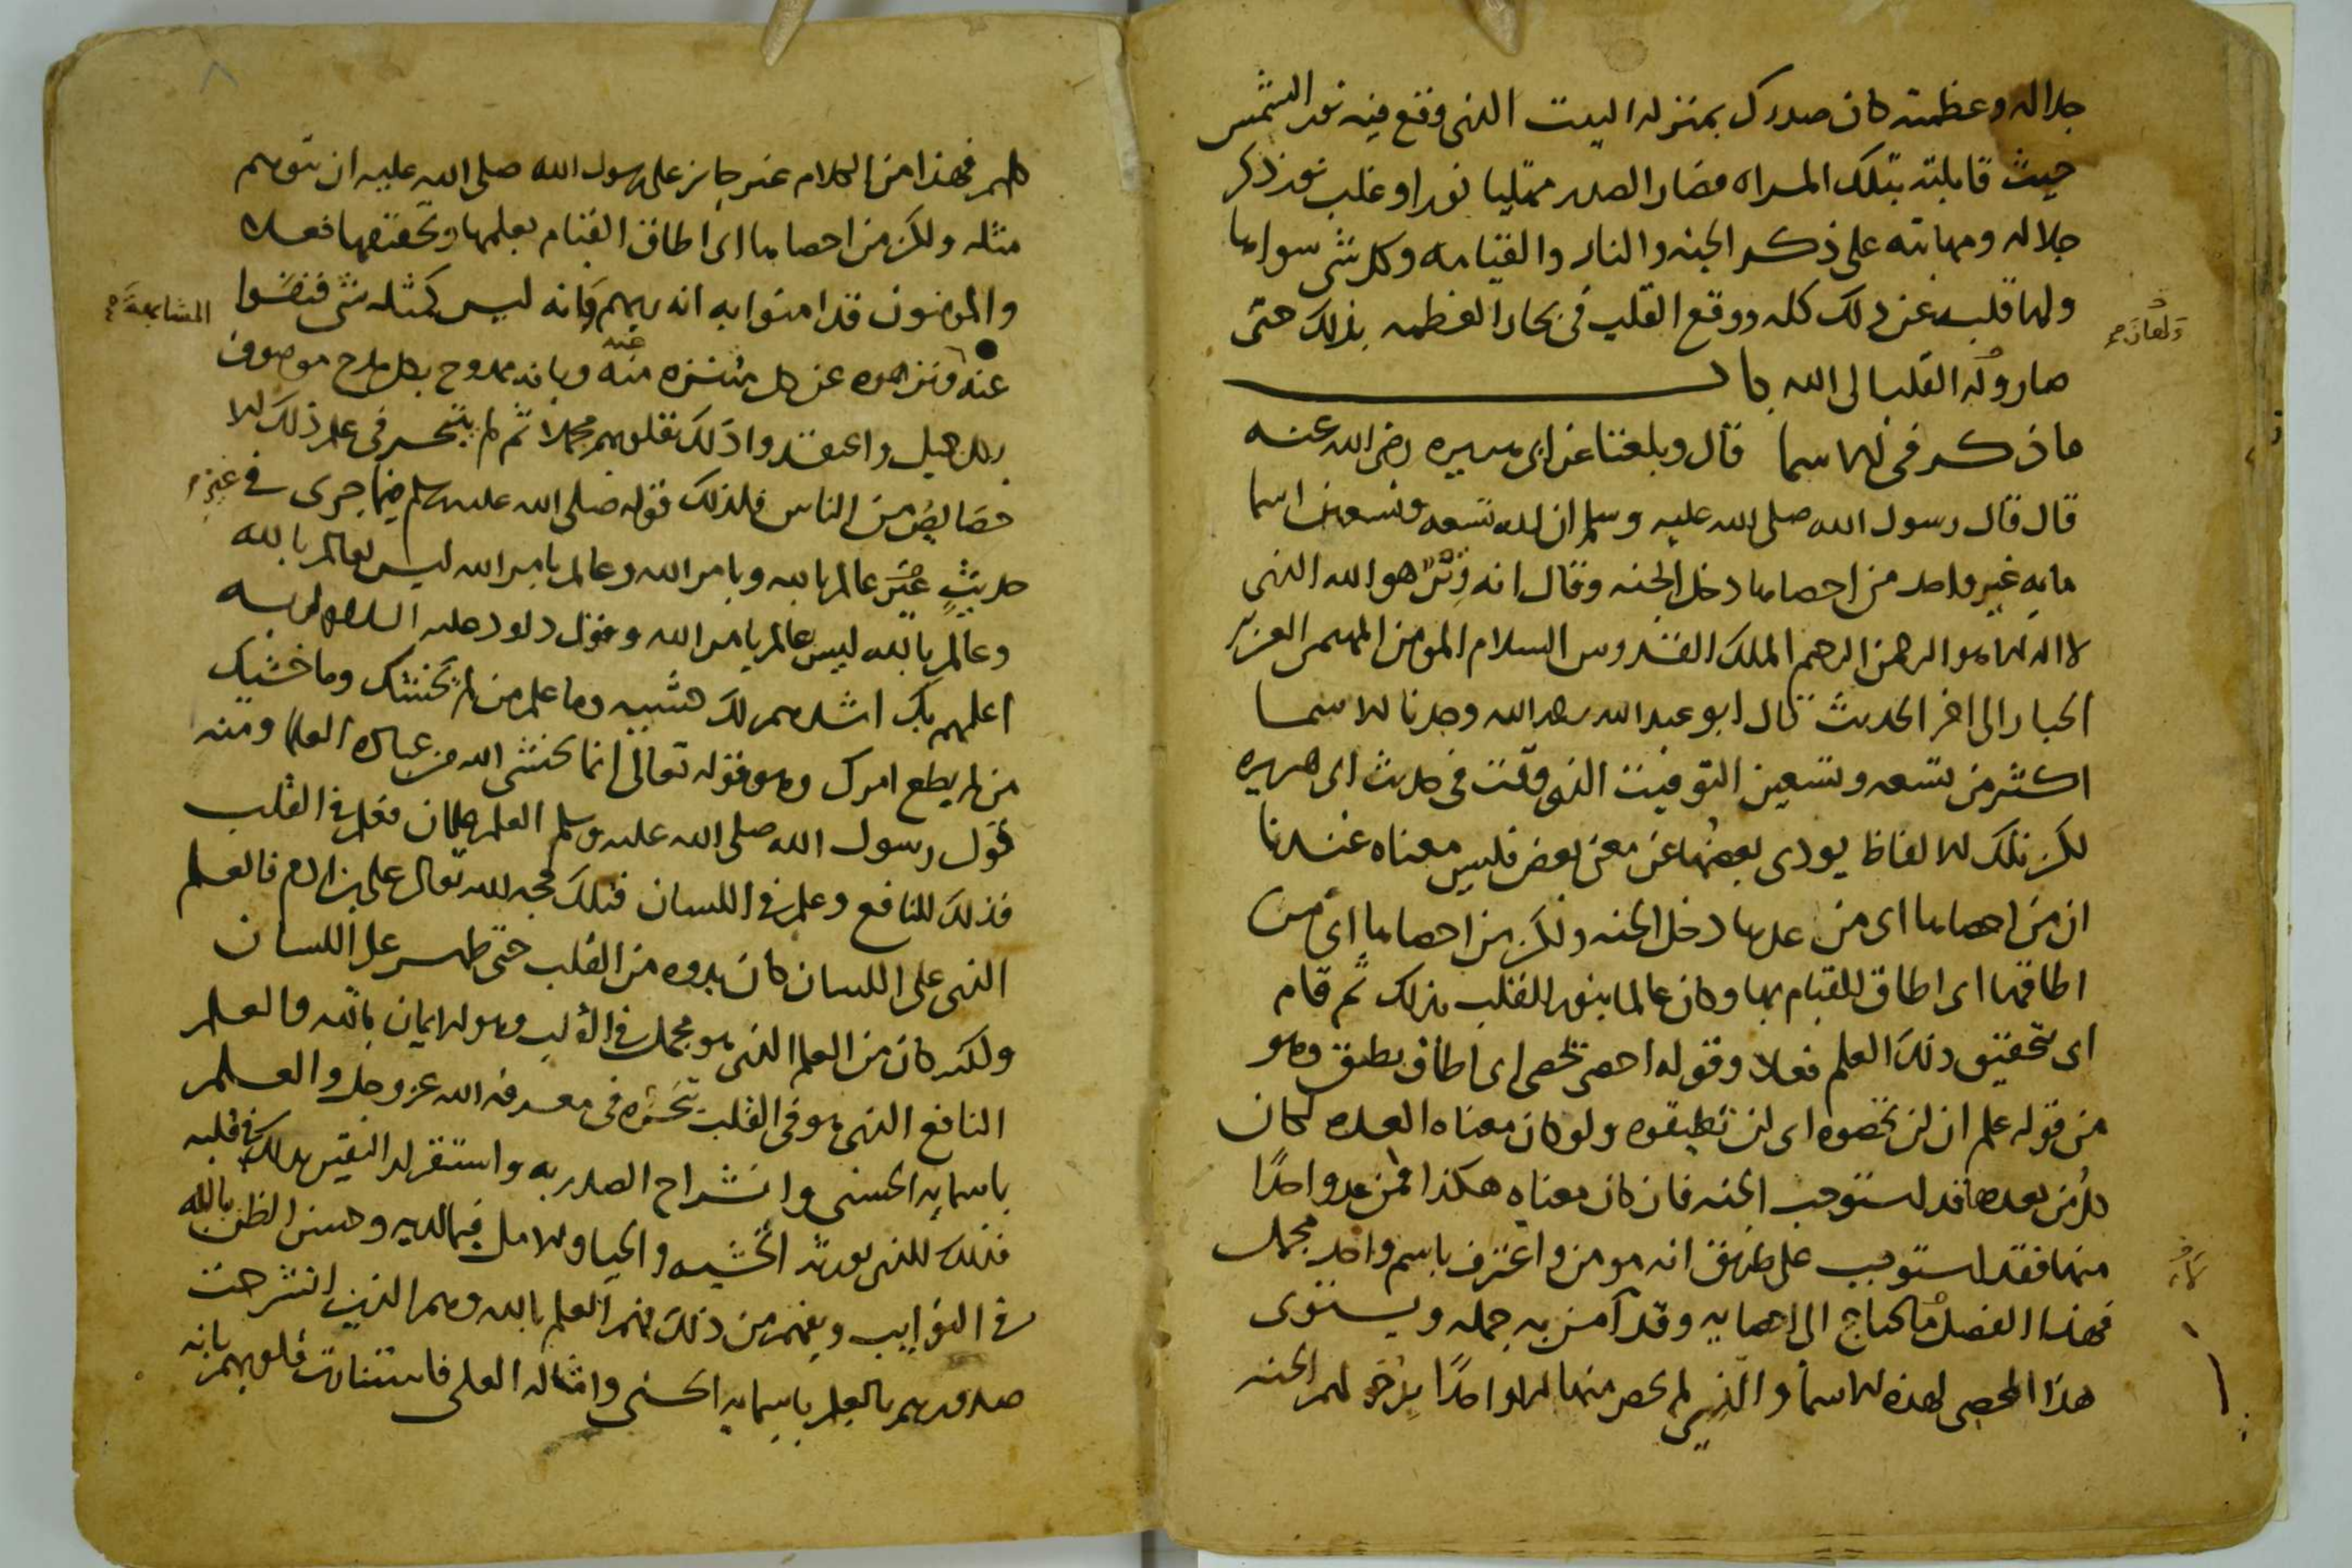 جلاله وعظمته كان صدرك بمنزله البيت الذى وقع فيه نور الشمس
حيث قابلته بتلك المراه فصار الصدر ممتليا نورا وغلب نور ذكر
جلاله ومهابته على ذكر الجنه والنار والقيامه وكل شى سواها
ولها قلبه عن ذلك كله ووقع القلب فى بحار العظمه بذلك حتى
صار وله القلب الى الله باب
ما ذكر فى الاسما قال وبلغنا عن ابى هريره رضى الله عنه
قال قال رسول الله صلى الله عليه وسلم ان لله تسعه وتسعين اسما
مايه غير واحد من احصاها دخل الجنه وقال انه وتر هو الله الذى
لا اله الا هو الرحمن الرحيم الملك القدوس السلام المومن المهيمن العزيز
الجبار الى اخر الحديث قال ابو عبد الله رحمه الله وجدنا الاسما
اكثر من تسعه وتسعين التوقيت الذى وقت فى حديث ابى هريره
لكن تلك الالفاظ يودى بعضها عن معنى بعض فليس معناه عندنا
ان من احصاها اى من عدها دخل الجنه ولكن من احصاها اى من
اطاقها اى اطاق للقيام بها وكان عالما بنور القلب بذلك ثم قام
اى بتحقيق ذلك العلم فعلا وقوله احصى تحصى اى اطاق يطيق وهو
من قوله علم ان لن تحصوه اى لن تطيقوه ولو كان معناه العدد لكان
كل من يعدها قد استوجب الجنه فان كان معناه هكذا فمن عد واحدًا
منها فقد استوجب على طريق انه مومن واعترف باسم واحد مجمل
فهذا الفضل ما يحتاج الى احصايه وقد آمن به جمله ويستوى
هذا المحصى لهذه الاسما والذى لم يحص منها الا واحدًا يدخل لهم الجنه
كلهم فهذا من الكلام غير جايز على رسول الله صلى الله عليه ان يتوهم
مثله ولكن من احصاها اى اطاق القيام بعلمها وتحقيقها فعلا
والمومنون قد امنوا به انه ربهم وانه ليس كمثله شى فنفوا المشابهة
عنه ونزهوه عن كل منزه منه وبانه ممدوح بكل مدح موصوف
بكل جميل واعتقدوا ذلك بقلوبهم مجملا ثم لم يتبحر فى علم ذلك الا
خصايص من الناس فلذلك قوله صلى الله عليه وسلم فيما جرى فى غير
حديثٍ عالم بالله وبامر الله وعالم بامر الله ليس بعالم بالله
وعالم بالله ليس عالم بامر الله وقول داود عليه السلام
اعلمهم بك اشدهم لك خشيه وما علم من لم يخشك وما خشيك
من لم يطع امرك وهو قوله تعالى انما يخشى الله من عباده العلما ومنه
قول رسول الله صلى الله عليه وسلم العلم علمان فعلم فى القلب
فذلك النافع وعلم فى اللسان فتلك حجه الله تعالى على بن ادم فالعلم
الذى على اللسان كان بدوه من القلب حتى ظهر على اللسان
ولكنه كان من العلم الذى هو مجمل فى القلب وهو الايمان بالله والعلم
النافع الذى هو فى القلب تبحره فى معرفه الله عز وجل والعلم
باسمايه الحسنى وانشراح الصدر به واستقر له اليقين بذلك فى قلبه
فذلك الذى يورثه الخشيه والحيا والامل فيما لديه وحسن الظن بالله
فى النوايب ويفهم من ذلك فهم العلم بالله وهم الذين انشرحت
صدورهم بالعلم باسمايه الحسنى وامثاله العلى فاستنارت قلوبهم بانه